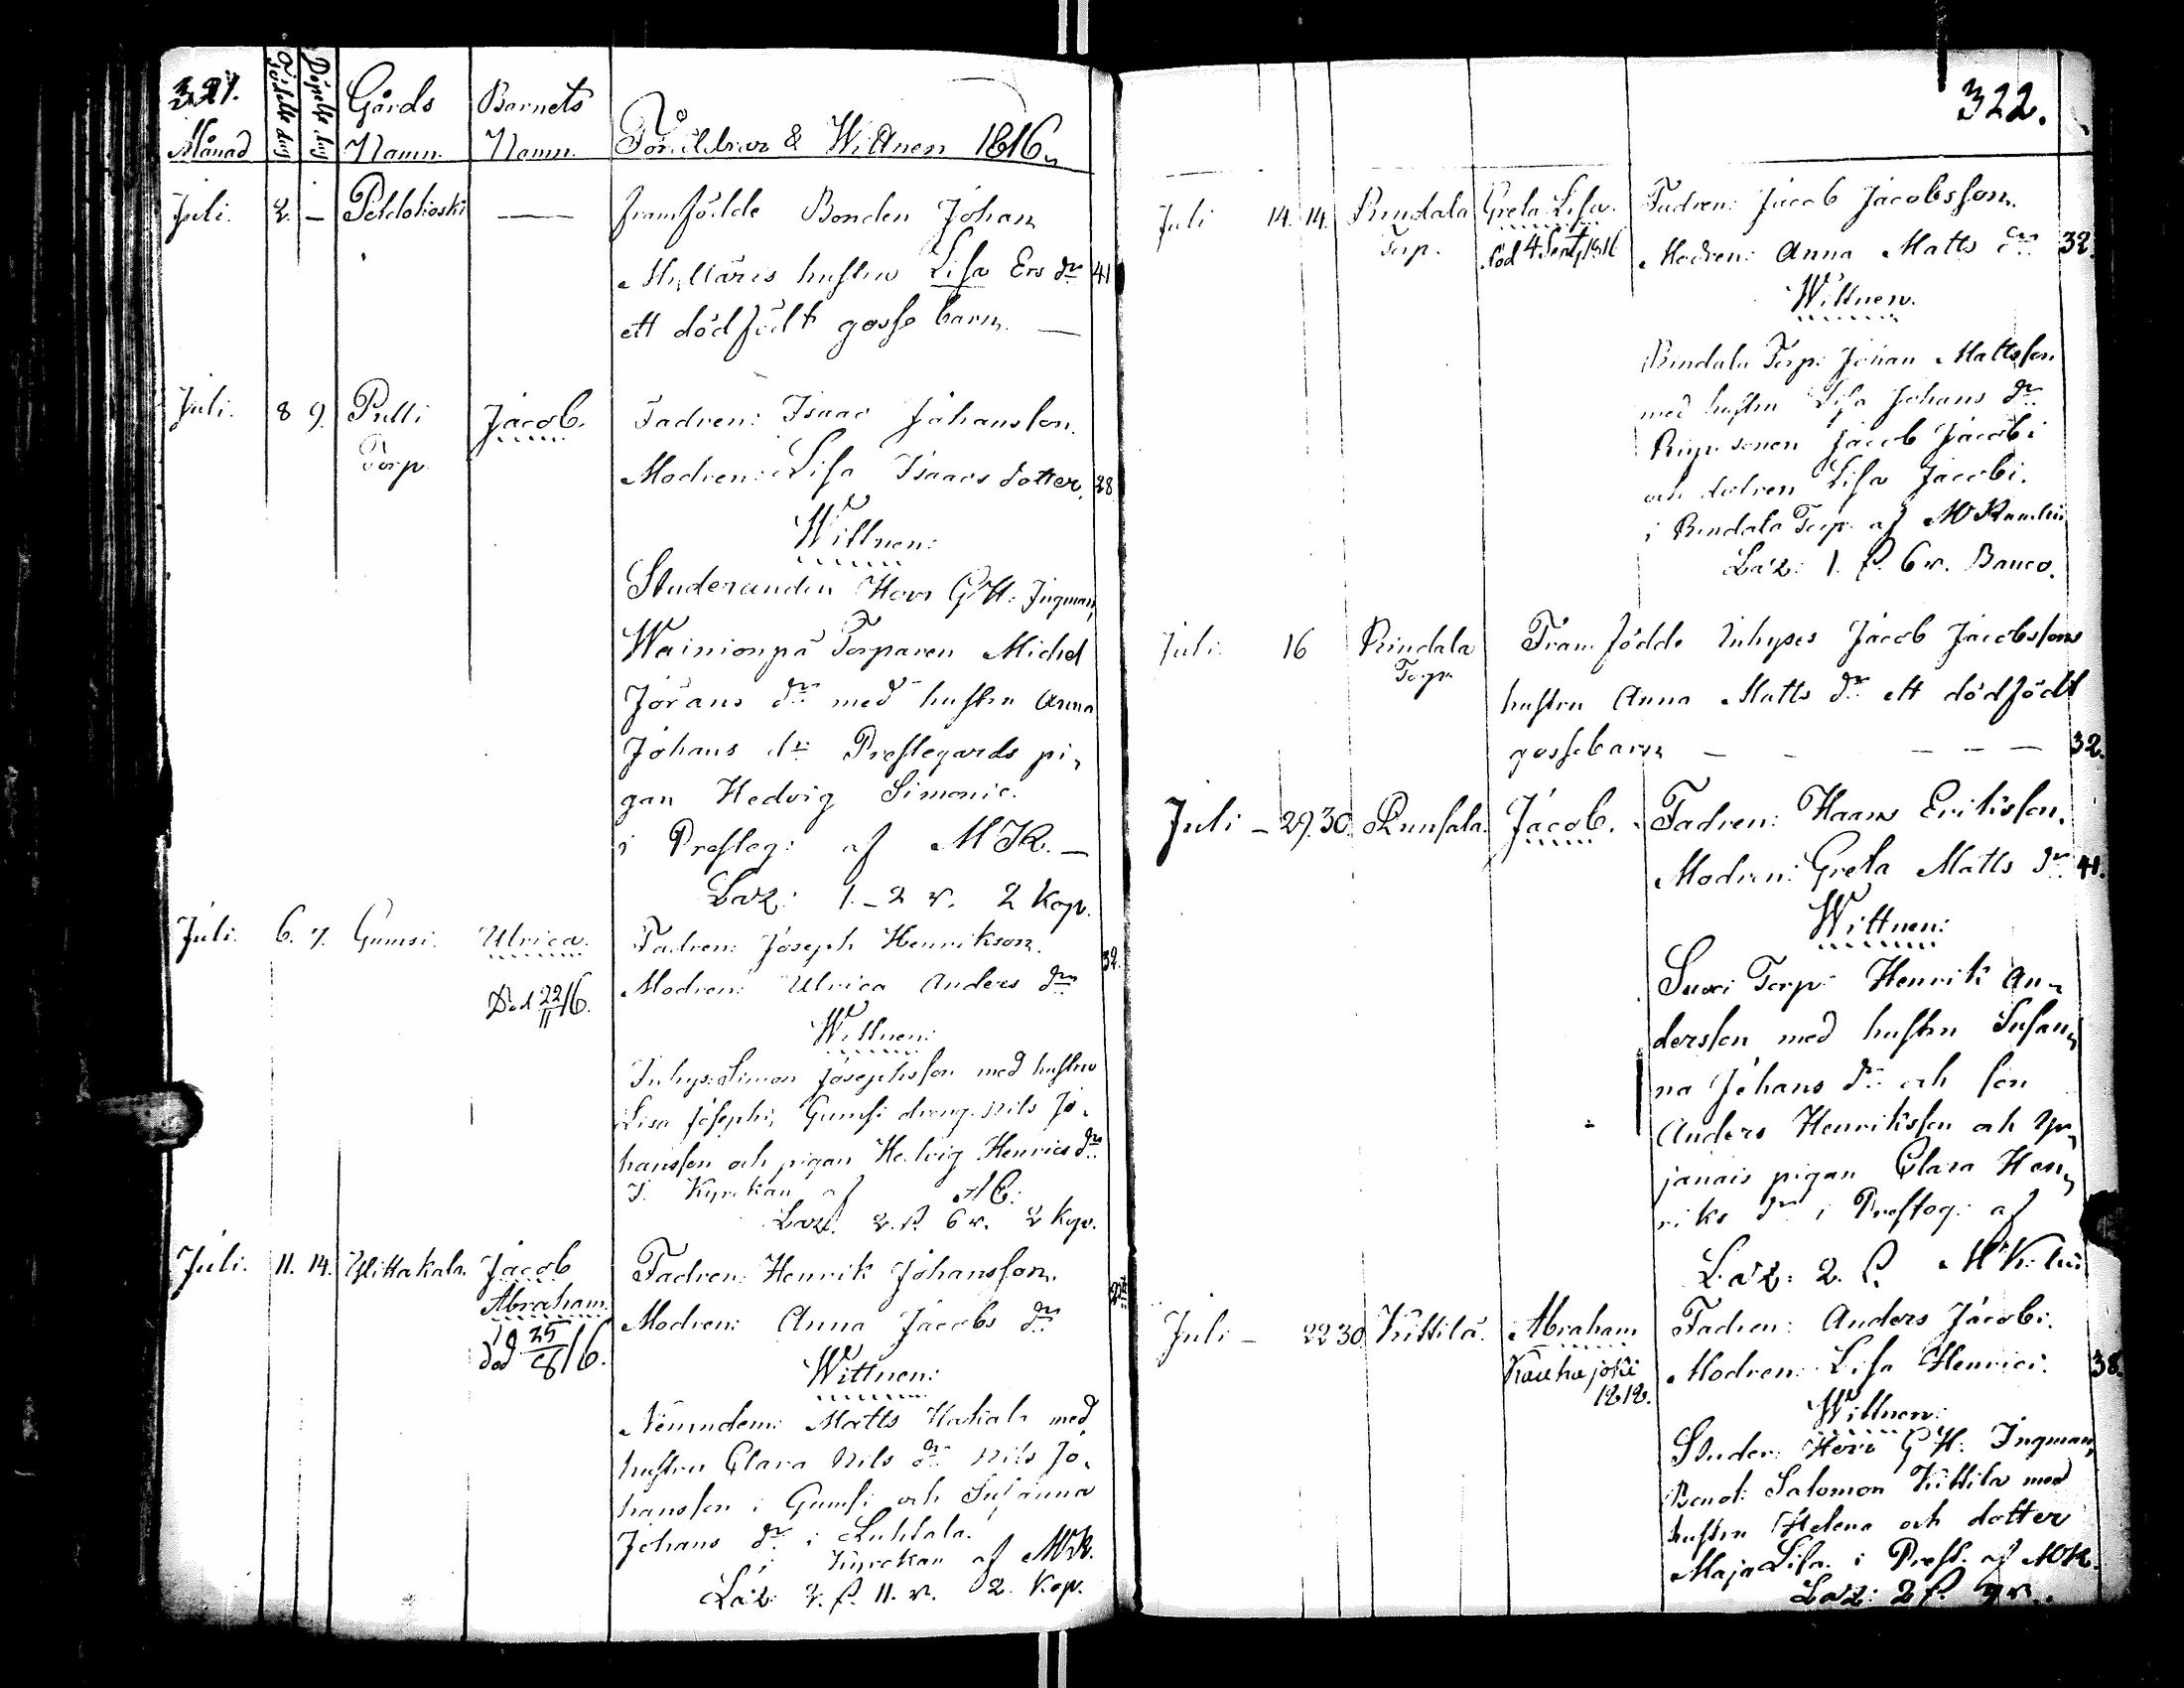 321.
Månad
Födelse dag
Döpelse dag
Gårds Namn.
Barnets Namn.
Föräldrar & Wittnen 1816.
Juli. 2. — Peldokoski —— framfödde Bonden Johan
Mylläris hustru Lisa Ers dr 41
ett dödfödt gosse barn. —
Juli. 8 9. Pulli Jacob. Fadren: Isaac Johansson.
Torp. Modren: Lisa Isaacs dotter. 28
Wittnen:
Studeranden Herr G H: Ingman,
Wainionpä Torparen Michel
Jörans dr med hustru Anna
Johans dr Prestegårds pi,
gan Hedvig Simonis.
i Presteg: af M K. —
Laz: 1. - 2 r. 2 Kop.
Juli. 6. 7. Gumsi. Ulrica. Fadren: Joseph Henrikson. 32.
Död 22/11 16. Modren: Ulrica Anders dr
Wittnen:
Inhys: Simon Josephsson med hustru
Lisa Josephi, Gumsi dreng. Nils Jo,
hansson och pigan Hedvig Henrics dr
I. Kyrckan af
Laz: 2. P. 6 r. 2 Kop.
Juli. 11. 14. Ylittakala. Jacob Fadren: Henrik Johansson.
Abraham. Modren: Anna Jacobs dr
död 25/8 16.
Wittnen:
Nämndem: Matts Hakala med
hustru Clara Nils dr Nils Jo,
hansson i Gumsi och Susanna
Johans dr i Luhtala.
i Kyrckan af MK.
Laz: 2. P. 11. r. 2. Kop.
322.
Juli 14. 14. Rindala Greta Lisa. Fadren: Jacob Jacobsson.
Torp. död 4 Sept 1816 Modren: Anna Matts dr 32.
Wittnen.
Rindala Torp: Johan Mattsson
med hustru Lisa Johans dr
sonen Jacob Jacobi
och dotren Lisa Jacobi.
i Rindala Torp. af M
Laz: 1. P. 6 r. Banco.
Juli. 16 Rindala Framfödde Inhyses Jacob Jacobssons
Torp. hustru Anna Matts dr ett dödfödt
gossebarn — - — — — 32.
Juli - 29. 30. Runsala. Jacob. Fadren: Haans Eriksson.
Modren: Greta Matts dr 41.
Wittnen:
Suxi Torp: Henrik An,
dersson med hustru Susan,
na Johans dr och son
Anders Henriksson och Yr,
janais pigan Clara Hen,
riks dr i Presteg: af
Laz: 2. P. M
Juli - 22 30. Kittilä. Abraham Fadren: Anders Jacobi.
Kauhajoki Modren: Lisa Henrici. 38.
1818.
Wittnen:
Studer: Herr G H: Ingman,
Bond: Salomon Kittila med
hustru Helena och dotter
Maja Lisa. i Prest. af MK.
Laz: 2 P.